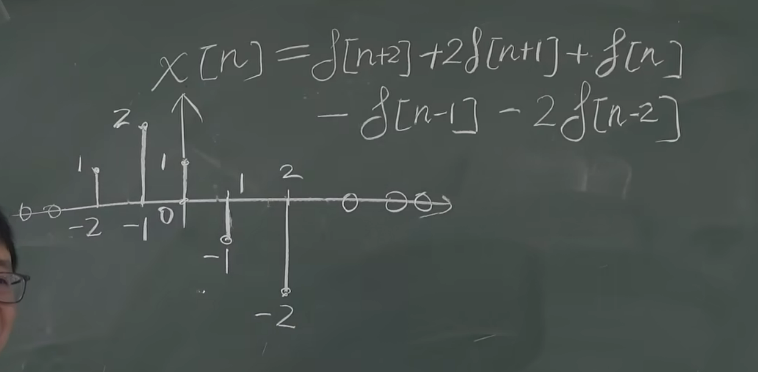 x[n] = δ[n+2] + 2δ[n+1] + δ[n]
- δ[n-1] - 2δ[n-2]
2
1 1 1 2
-2 -1 0
-1
-2